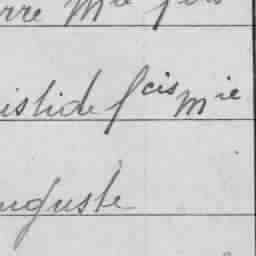 rre Mie
istide fcis Mie
uguste